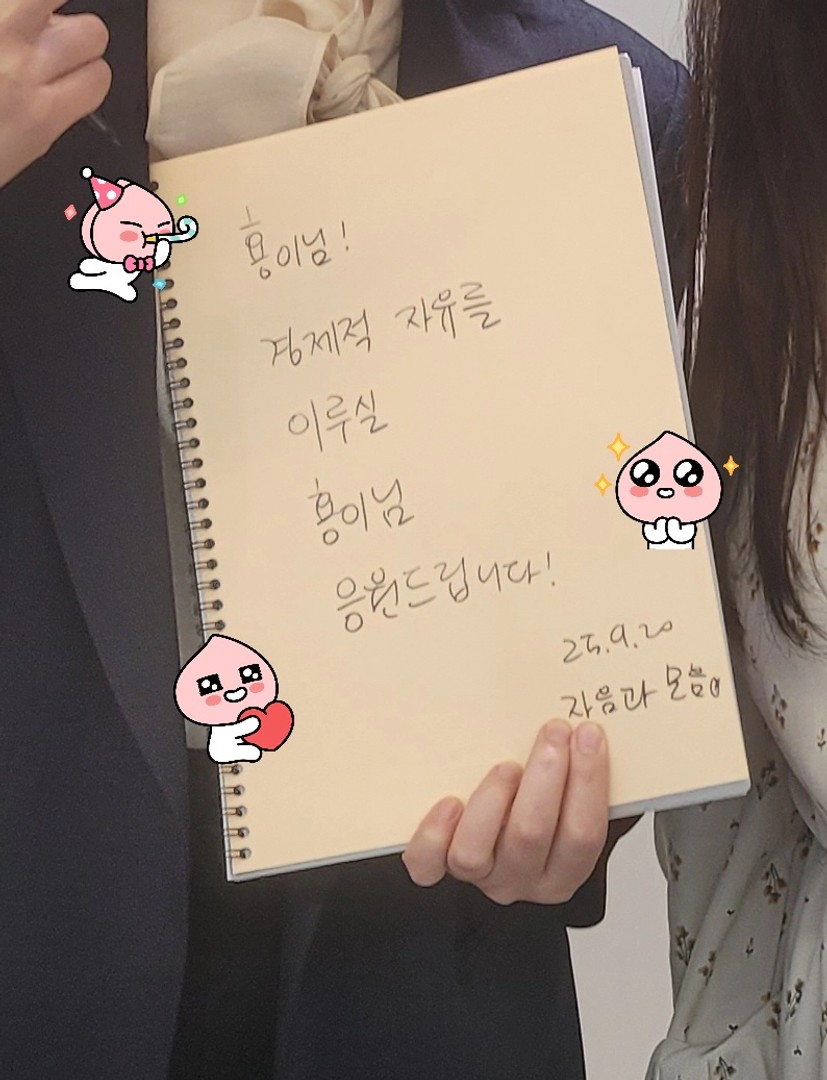 홍이님!
경제적 자유를
이루실
홍이님
응원드립니다!
25.9.20
자음과 모음